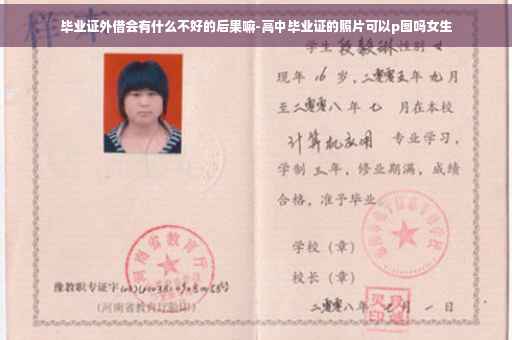 毕业证外借会有什么不好的后果嘛-高中毕业证的照片可以p图吗女生
样本
学生 段毅琳 性别 女
现年 16 岁,二零零五年 九月
至二零零八年 七 月在本校
计算机应用 专业学习,
学制 三年,修业期满,成绩
合格,准予毕业
学校(章)
校长(章)
河南省教育厅
豫教职专证字
(河南省教育厅验印)
二零零八年 月 一 日